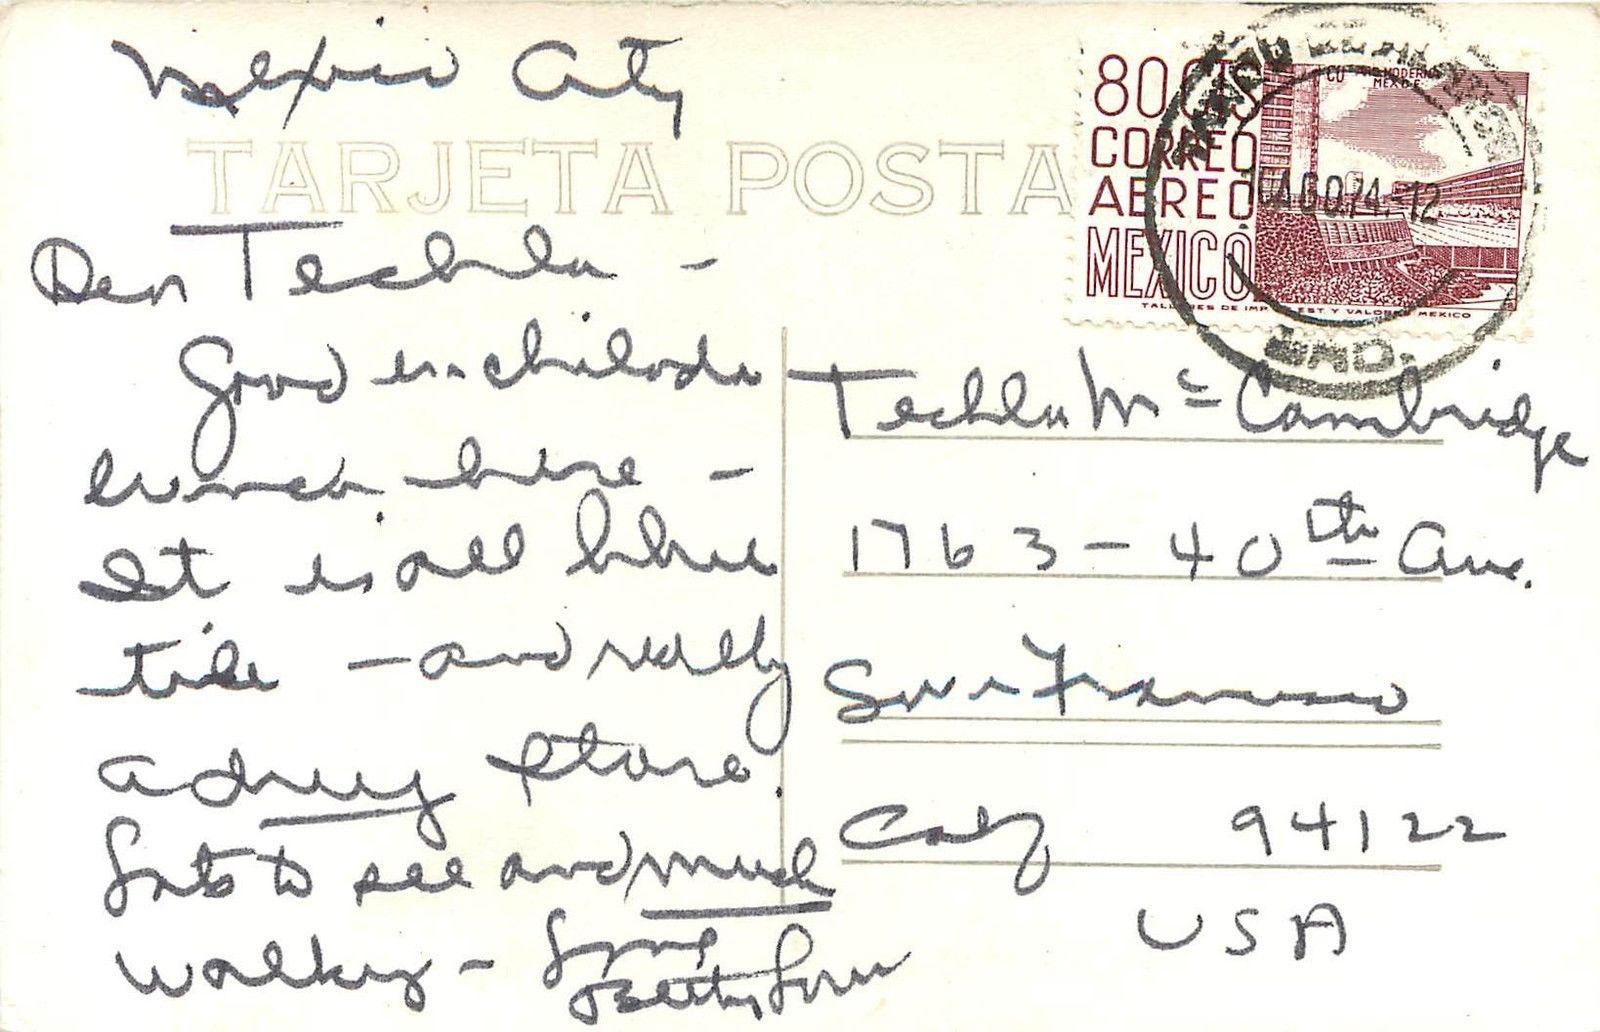 Mexico City
TARJETA POSTA
80 CTS
CORREO
AEREO
MEXICO
ARQ. MODERNA
MEX D.F.
TALLERES DE IMP. EST. Y VALORES MEXICO
AGO.74.-12
Dear Techla -
Good enchilada
lunch here -
It is all blue
tile - and really
a drug store.
Lots to see and much
walking - Love
Betty Lou
Techla Mc Cambridge
1763 - 40th Ave.
San Francisco
Calif 94122
USA